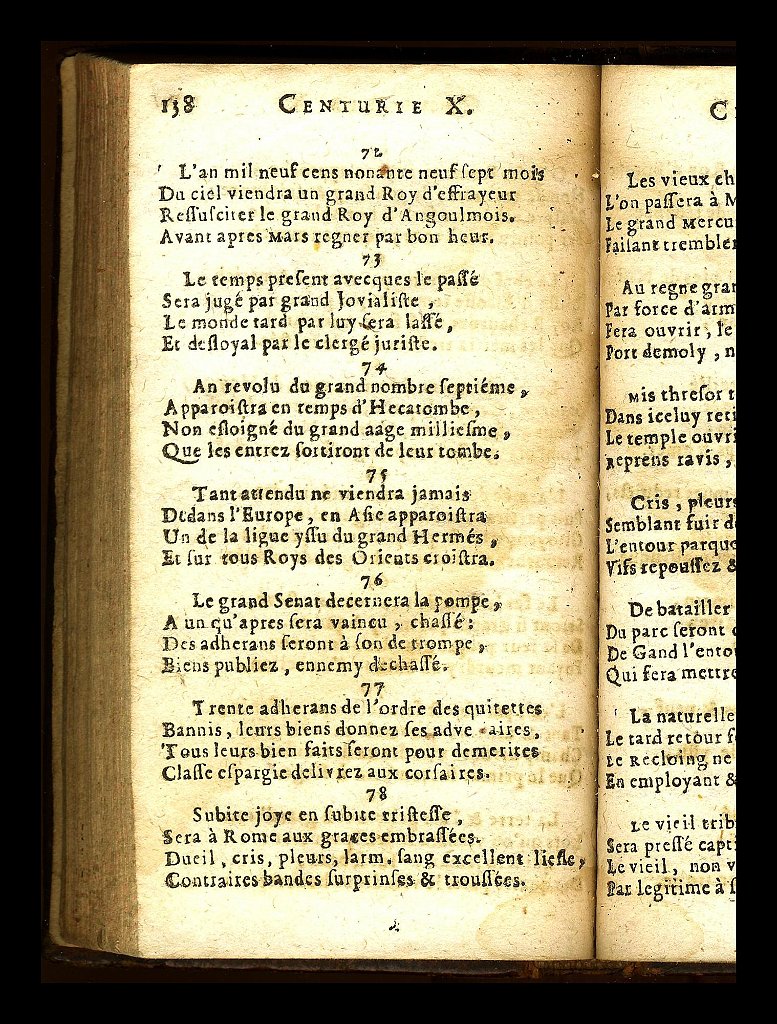 138 CENTURIE X.
72
L'an mil neuf cens nonante neuf ſept mois
Du ciel viendra un grand Roy d'effrayeur
Reſſuſciter le grand Roy d'Angoulmois.
Avant apres Mars regner par bon heur.
73
Le temps preſent avecques le paſſé
Sera jugé par grand Jovialiſte ,
Le monde tard par luy ſera laſſé ,
Et deſloyal par le clergé juriſte.
74
An revolu du grand nombre ſeptiéme ,
Apparoiſtra en temps d'Hecatombe ,
Non eſloigné du grand aage millieſme ,
Que les entrez ſortiront de leur tombe.
75
Tant attendu ne viendra jamais
Dedans l'Europe , en Aſie apparoiſtra
Un de la ligue yſſu du grand Hermés ,
Et ſur tous Roys des Orients croiſtra.
76
Le grand Senat decernera la pompe ,
A un qu'apres ſera vaincu , chaſſé :
Des adherans ſeront à ſon de trompe ,
Biens publiez , ennemy dechaſſé.
77
Trente adherans de l'ordre des quirettes
Bannis , leurs biens donnez ſes adve aires ,
Tous leurs bien faits ſeront pour demerites
Claſſe eſpargie delivrez aux corſaires.
78
Subite joye en ſubite triſteſſe ,
Sera à Rome aux graces embraſſées.
Dueil , cris , pleurs, larm. ſang excellent lieſſe ,
Contraires bandes ſurprinſes & trouſſées.
C
Les vieux ch
L'on paſſera à M
Le grand Mercu
Faiſant trembler
Au regne gran
Par force d'arm
Fera ouvrir , le
Port demoly , n
Mis threſor t
Dans iceluy reti
Le temple ouvri
Reprens ravis ,
Cris , pleurs
Semblant fuir d
L'entour parque
Vifs repouſſez &
De batailler
Du parc ſeront
De Gand l'ento
Qui fera mettre
La naturelle
Le tard retour ſ
Le Recloing ne
En employant &
Le vieil trib
Sera preſſé capti
Le vieil , non v
Par legitime à